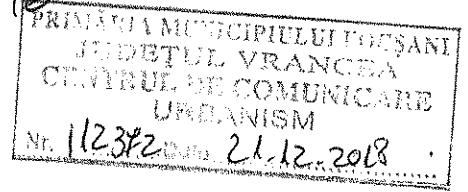 PRIMĂRIA MUNICIPIULUI FOCȘANI
JUDEȚUL VRANCEA
CENTRUL DE COMUNICARE
URBANISM
Nr. 112372 Data 21.12.2018